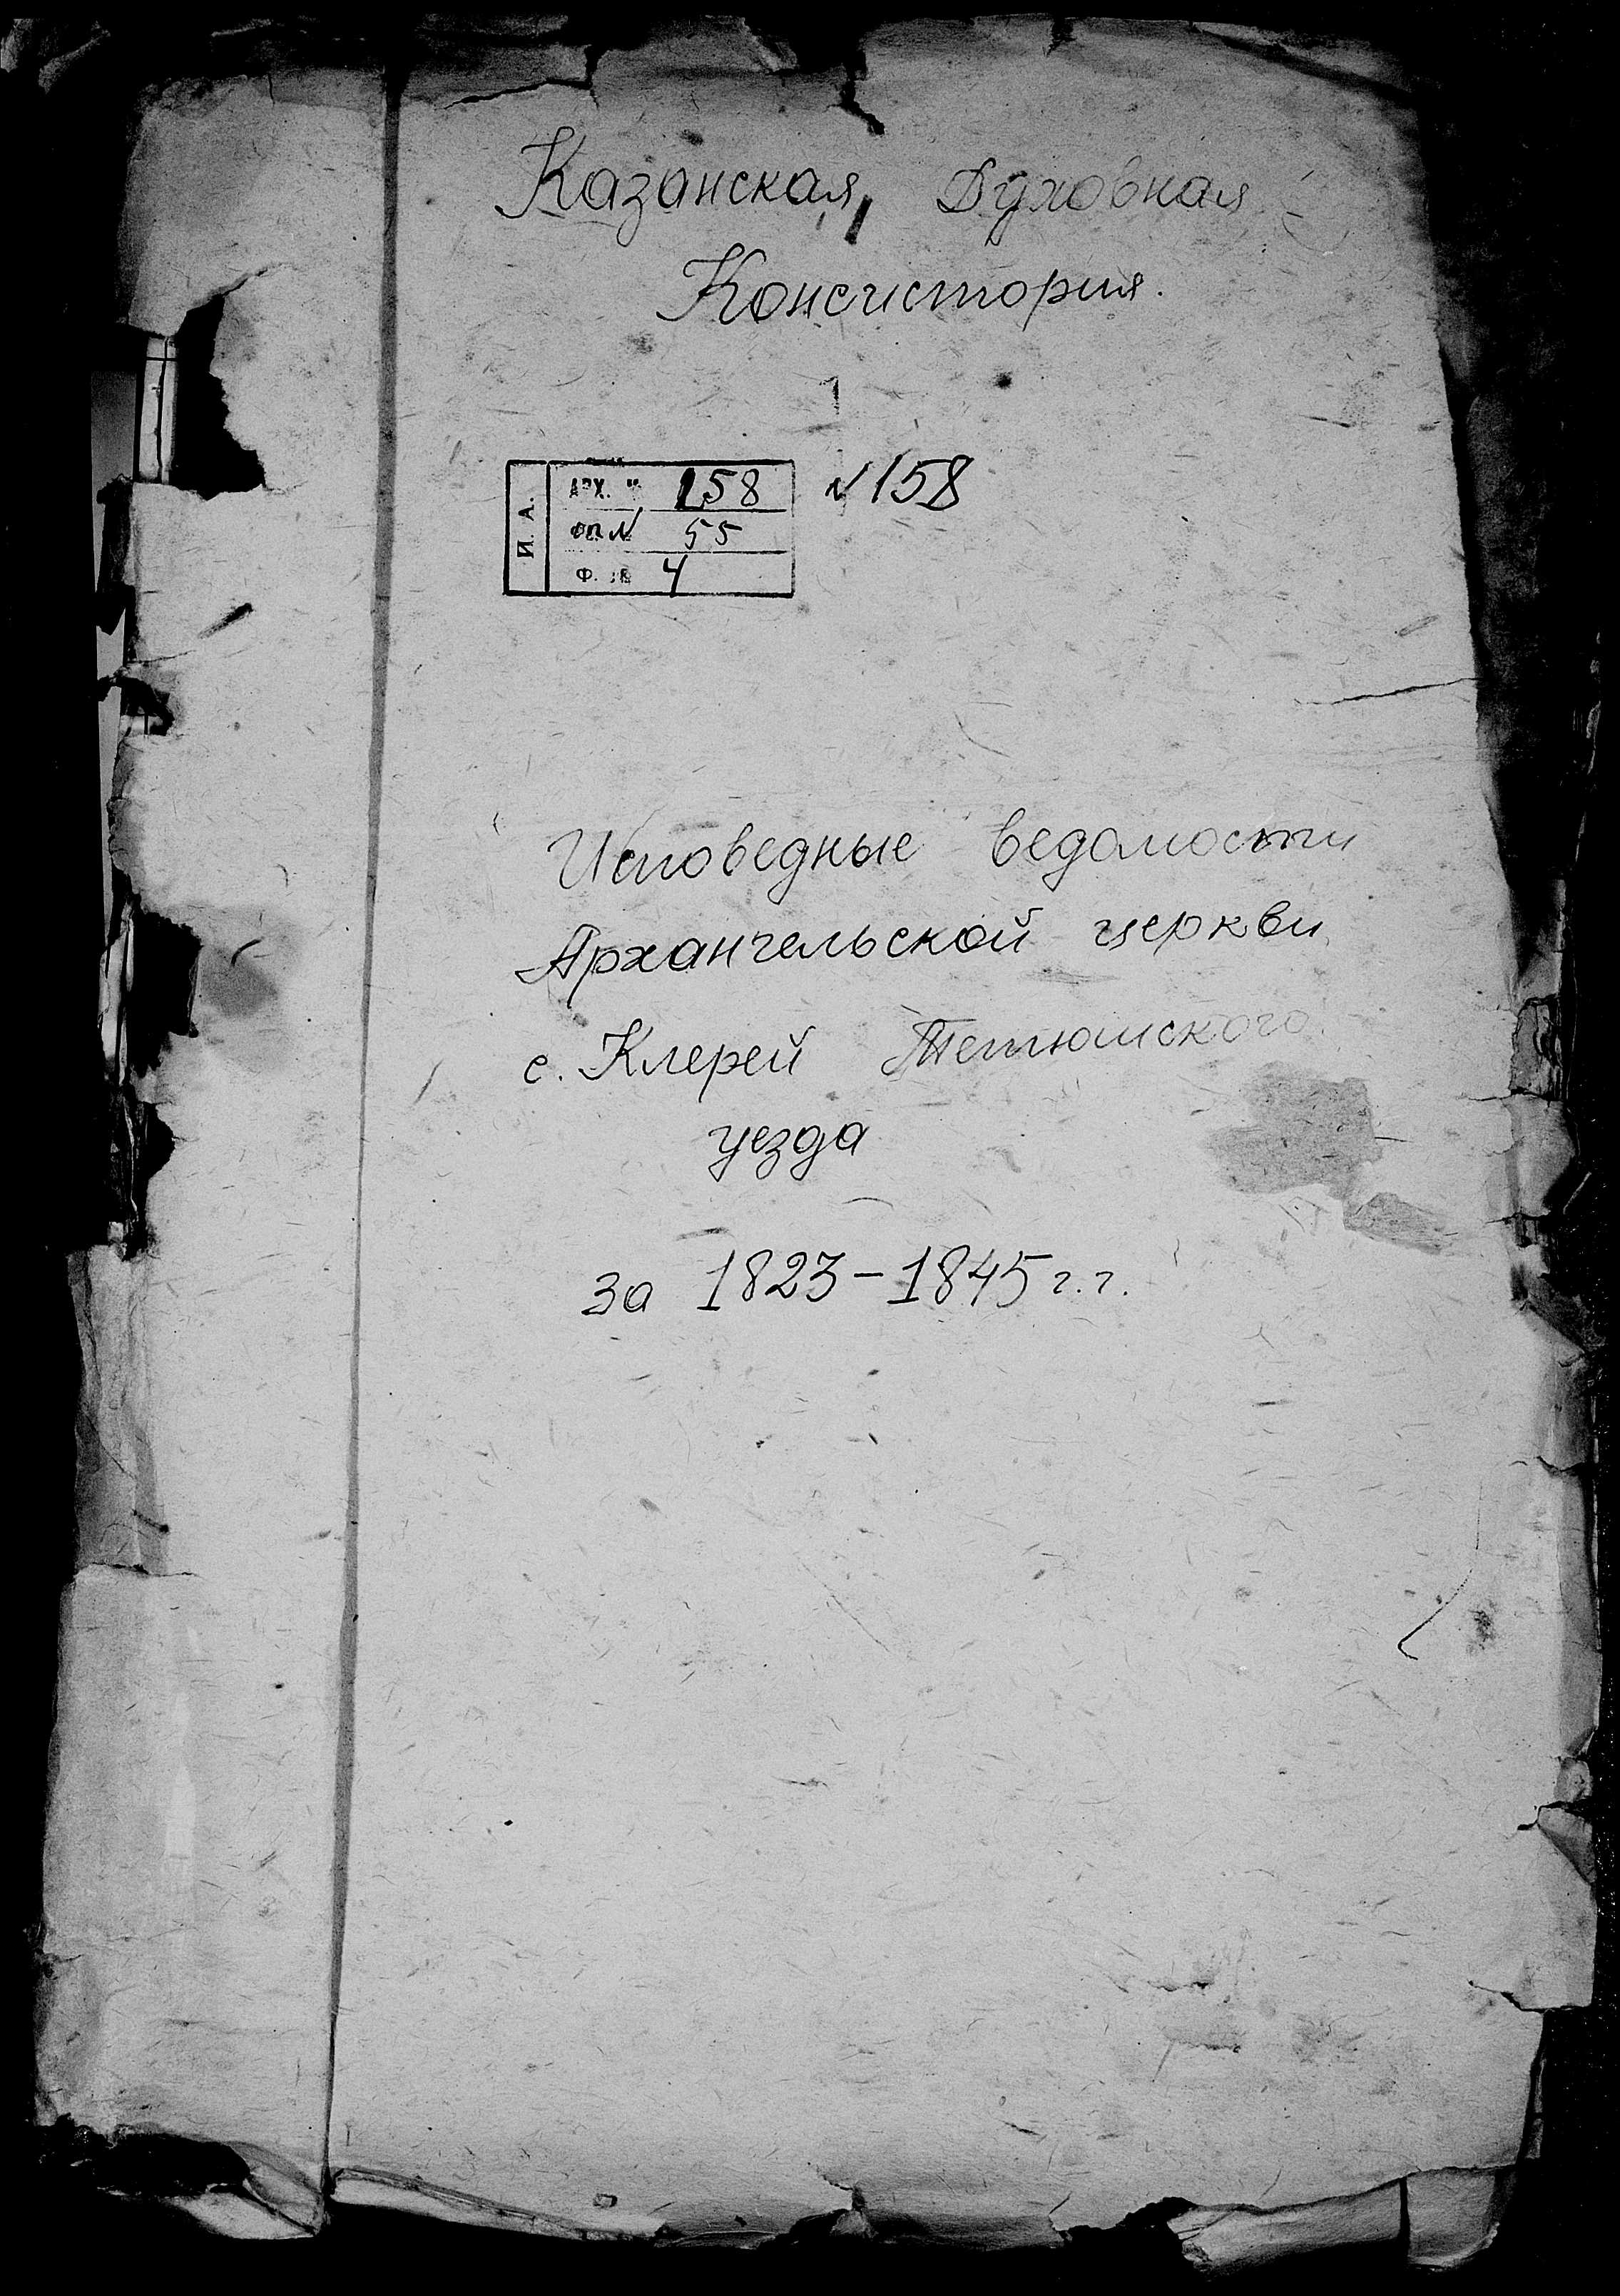 Казанская Духовная
Консистория.
1
И. А.
АРХ. № 158
оп N 55
Ф. № 4
N 158
Исповедные ведомости
Архангельской церкви
с. Клерей Тетюшского
уезда
за 1823-1845 г.г.